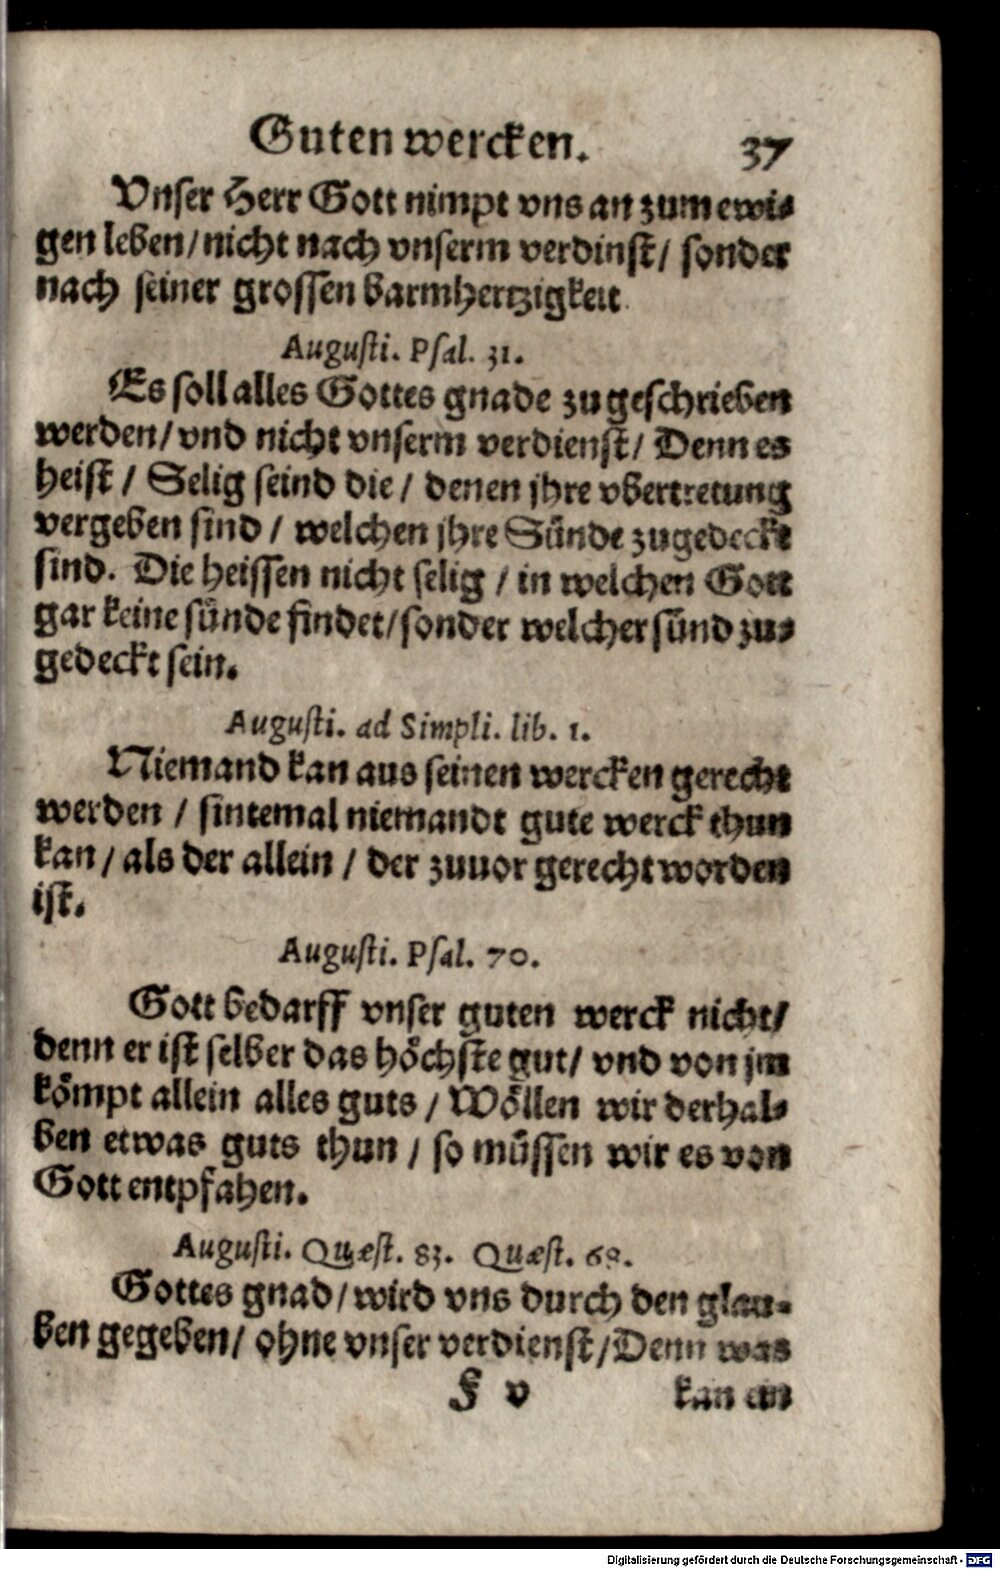 Guten wercken. 37
Vnser Herr Gott nimpt vns an zum ewi-
gen leben/ nicht nach vnserm verdinst/ sonder
nach seiner grossen barmhertzigkeit.
Augusti. Psal. 31.
Es soll alles Gottes gnade zugeschrieben
werden/ vnd nicht vnserm verdienst/ Denn es
heist / Selig seind die / denen jhre vbertretung
vergeben sind / welchen jhre Sünde zugedeckt
sind. Die heissen nicht selig / in welchen Gott
gar keine sünde findet/ sonder welcher sünd zu-
gedeckt sein.
Augusti. ad Simpli. lib. 1.
Niemand kan aus seinen wercken gerecht
werden / sintemal niemandt gute werck thun
kan / als der allein / der zuuor gerecht worden
ist.
Augusti. Psal. 70.
Gott bedarff vnser guten werck nicht/
denn er ist selber das höchste gut/ vnd von jm
kömpt allein alles guts / Wöllen wir derhal-
ben etwas guts thun / so müssen wir es von
Gott entpfahen.
Augusti. Quæst. 83. Quæst. 68.
Gottes gnad / wird vns durch den glau-
ben gegeben/ ohne vnser verdienst/ Denn was
F v kan ein
Digitalisierung gefördert durch die Deutsche Forschungsgemeinschaft - DFG